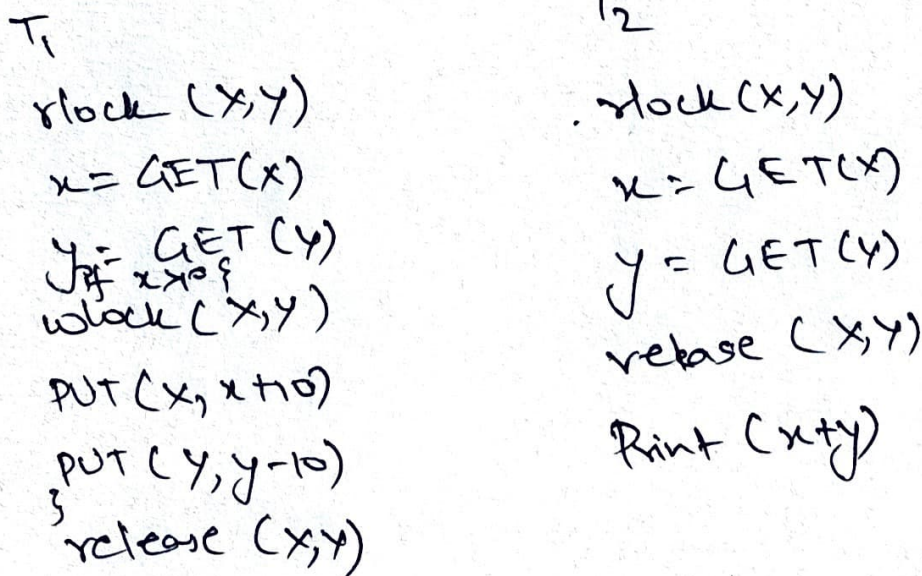 T1
rlock (X,Y)
x = GET(X)
y = GET (Y)
if x>0 {
wlock (X,Y)
PUT (X, x+10)
PUT (Y, y-10)
}
release (X,Y)
T2
rlock (X,Y)
x = GET(X)
y = GET(Y)
release (X,Y)
Print (x+y)